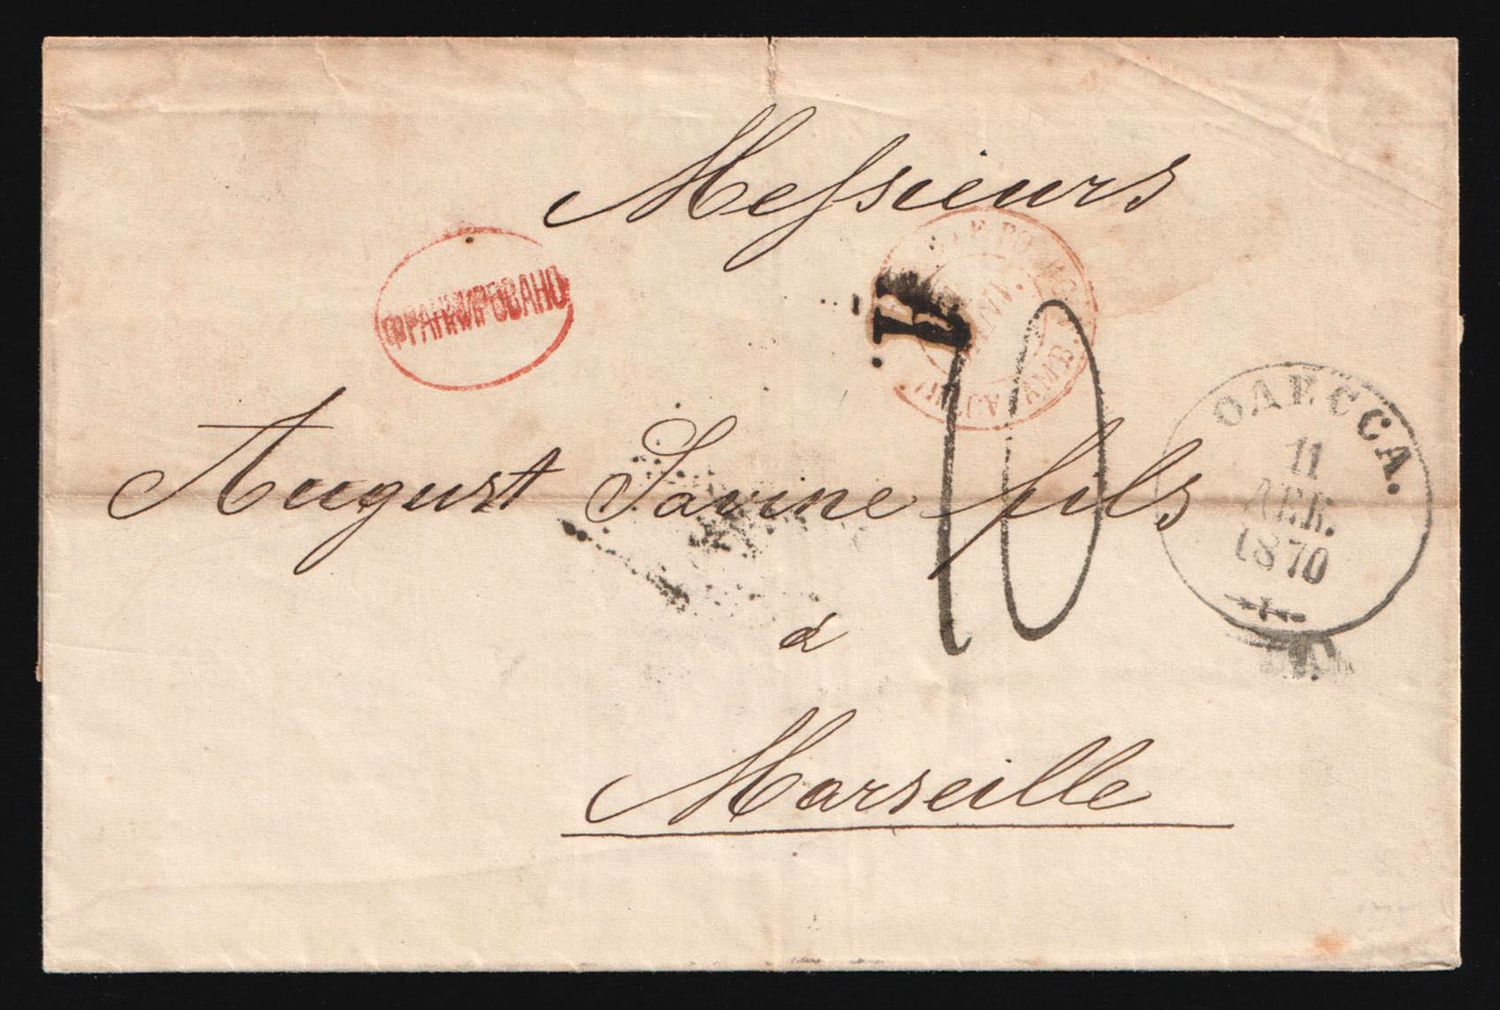 Messieurs
ФРАНКИРОВАНО
August Savine fils
10
ОДЕССА.
11
ДЕК.
1870
1
à
Marseille